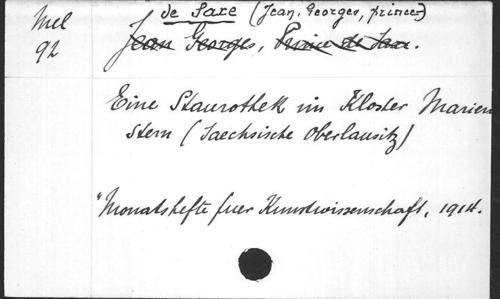 Mel
92
de Saxe (Jean, Georges, prince)
Jean Georges, Prince de Saxe.
Eine Staurothek im Kloster Marien
stern (Saechsische Oberlausitz)
"Monatshefte fuer Kunstwissenschaft, 1914.